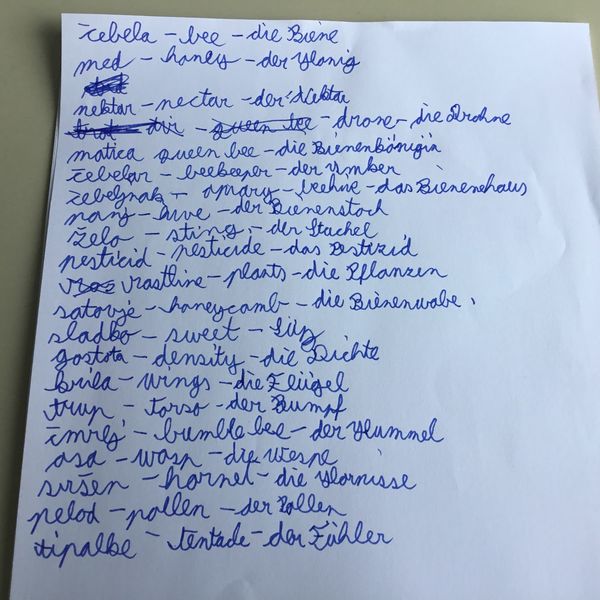 čebela - bee - die Biene
med - honey - der Honig
nektar - nectar - der Nektar
trot - queen bee - drone - die Drohne
matica queen bee - die Bienenkönigin
čebelar - beekeeper - der Imker
čebelnjak - apiary - beehive - das Bienenhaus
panj - hive - der Bienenstock
želo - sting - der Stachel
pesticid - pesticide - das Pestizid
rastline - plants - die Pflanzen
satovje - honeycomb - die Bienenwabe
sladko - sweet - süß
gostota - density - die Dichte
krila - wings - die Flügel
trup - torso - der Rumpf
čmrlj - bumble bee - der Hummel
osa - wasp - die Wespe
sršen - hornet - die Hornisse
pelod - pollen - der Pollen
tipalke - tentacle - der Fühler